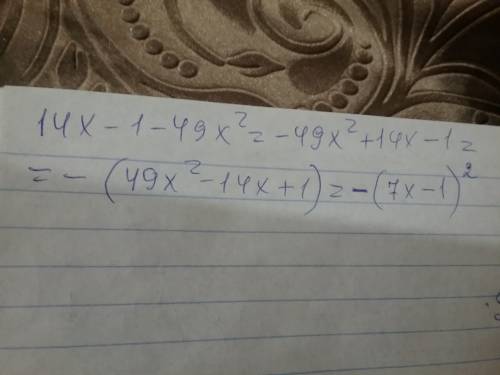 14x-1-49x²=-49x²+14x-1=
=-(49x²-14x+1)=-(7x-1)²